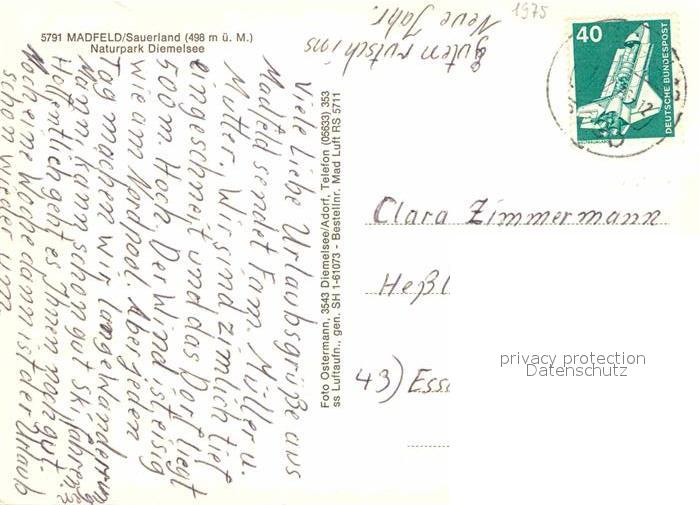 5791 MADFELD/Sauerland (498 m ü. M.)
Naturpark Diemelsee
Viele liebe Urlaubsgrüße aus
Madfeld sendet Fam. Müller u.
Mutter. Wir sind zimlich tief
eingeschneit und das Dorf liegt
500 m. Hoch. Der Wind ist eisig
wie am Nordpol. Aber jeden
Tag machen wir lange Wanderung
Manni kann schon gut Skifahren.
Hoffentlich geht es Ihnen noch gut.
Noch eine Woche dann ist der Urlaub
schon wieder um
guten rutsch ins
Neue Jahr.
Foto Ostermann, 3543 Diemelsee/Adorf, Telefon (05633) 353
ss Luftaufn., gen. SH 1-61073 - Bestellnr. Mad Luft RS 5711
1975
40
DEUTSCHE BUNDESPOST
Clara Zimmermann
Heßl
43) Esse
privacy protection
Datenschutz